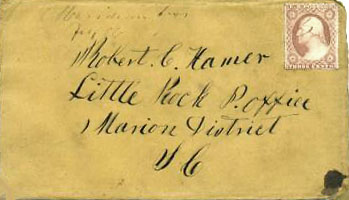 Robert. C. Hamer
Little Rock P. office
Marion District
S C
THREE CENTS